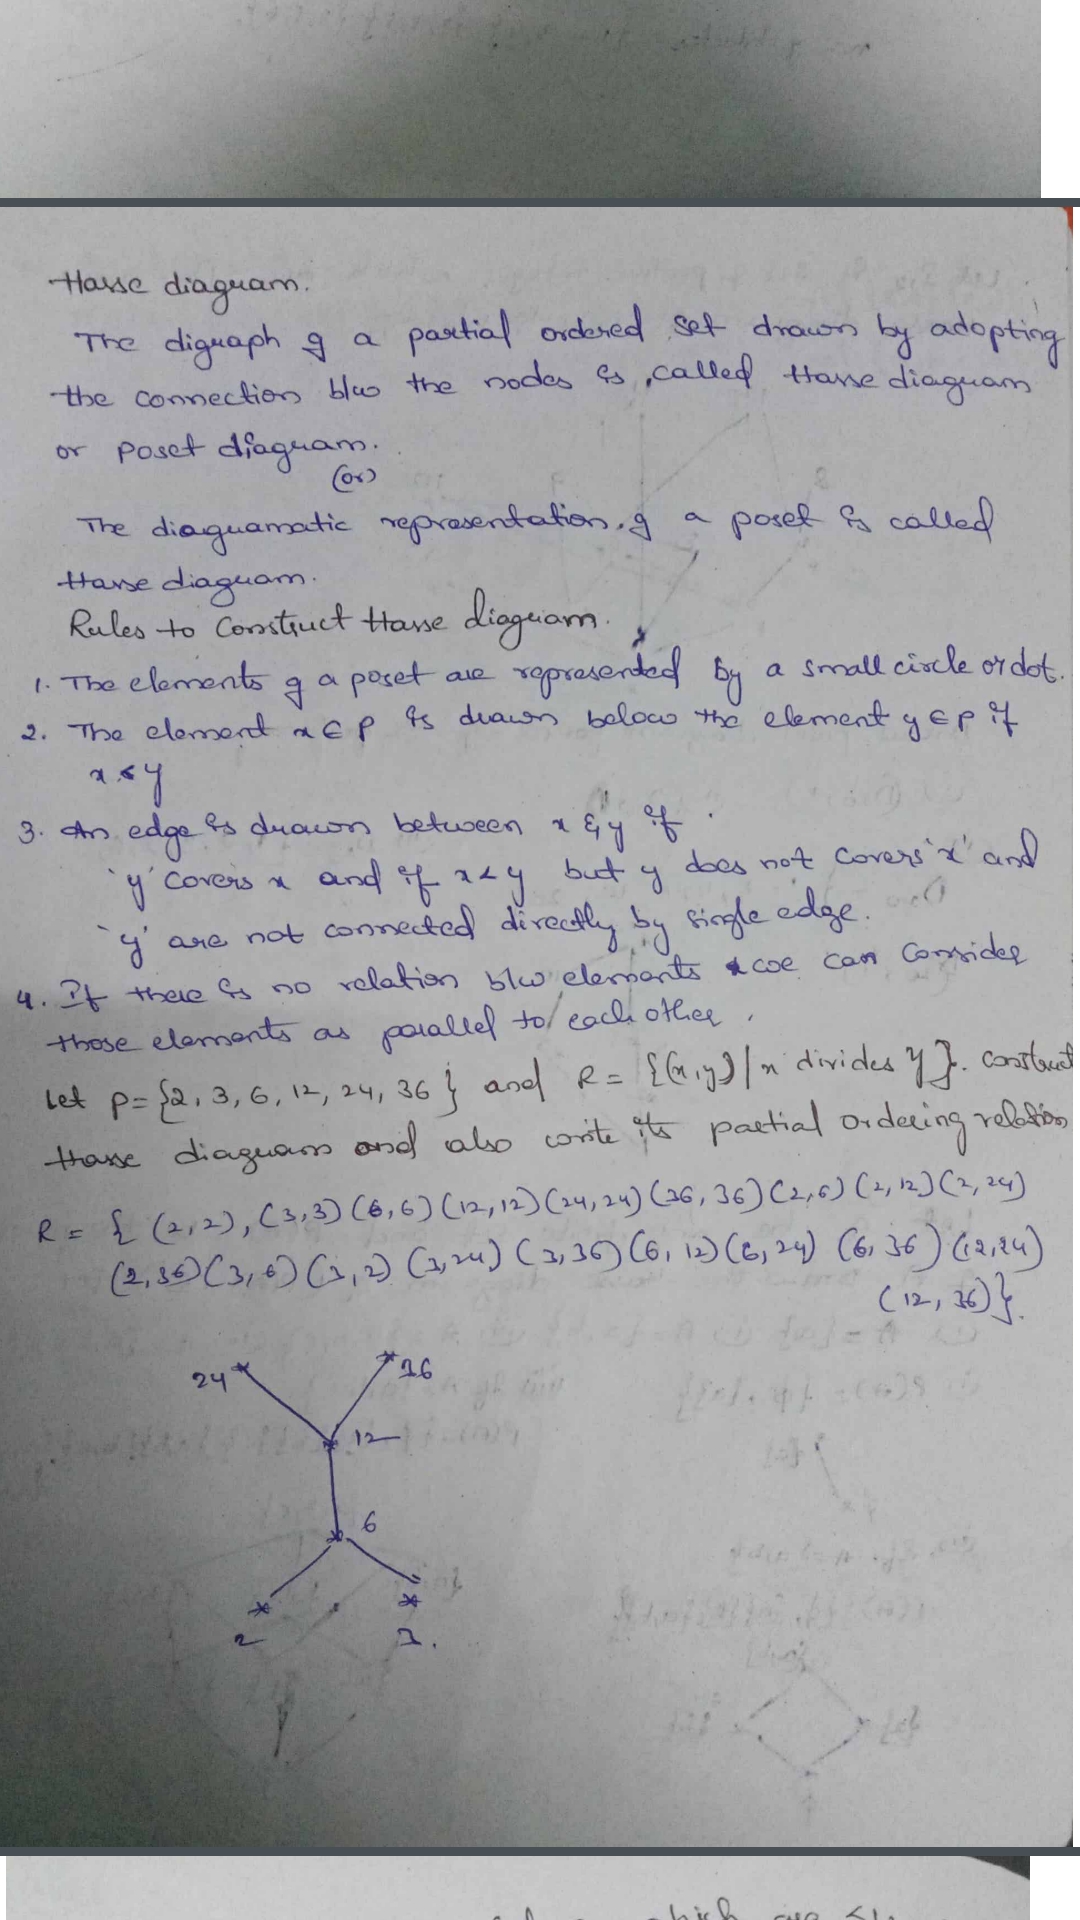 Hasse diagram.
The digraph of a partial ordered set drawn by adopting
the connection b/w the nodes is called Hasse diagram
or poset diagram.
(or)
The diagramatic representation of a poset is called
Hasse diagram.
Rules to construct Hasse diagram.
1. The elements of a poset are represented by a small circle or dot.
2. The element x ∈ P is drawn below the element y ∈ P if
x < y
3. An edge is drawn between x & y if
'y' covers x and if x < y but y does not covers 'x' and
'y' are not connected directly by single edge.
4. If there is no relation b/w elements we can consider
those elements as parallel to each other.
Let P = {2, 3, 6, 12, 24, 36} and R = {(x,y) | x divides y}. construct
Hasse diagram and also write its partial ordering relation
R = { (2,2), (3,3) (6,6) (12,12) (24,24) (36,36) (2,6) (2,12) (2,24)
(2,36) (3,6) (3,2) (3,24) (3,36) (6,12) (6,24) (6,36) (12,24)
(12,36)}.
24 36
12
6
2 3.
which are